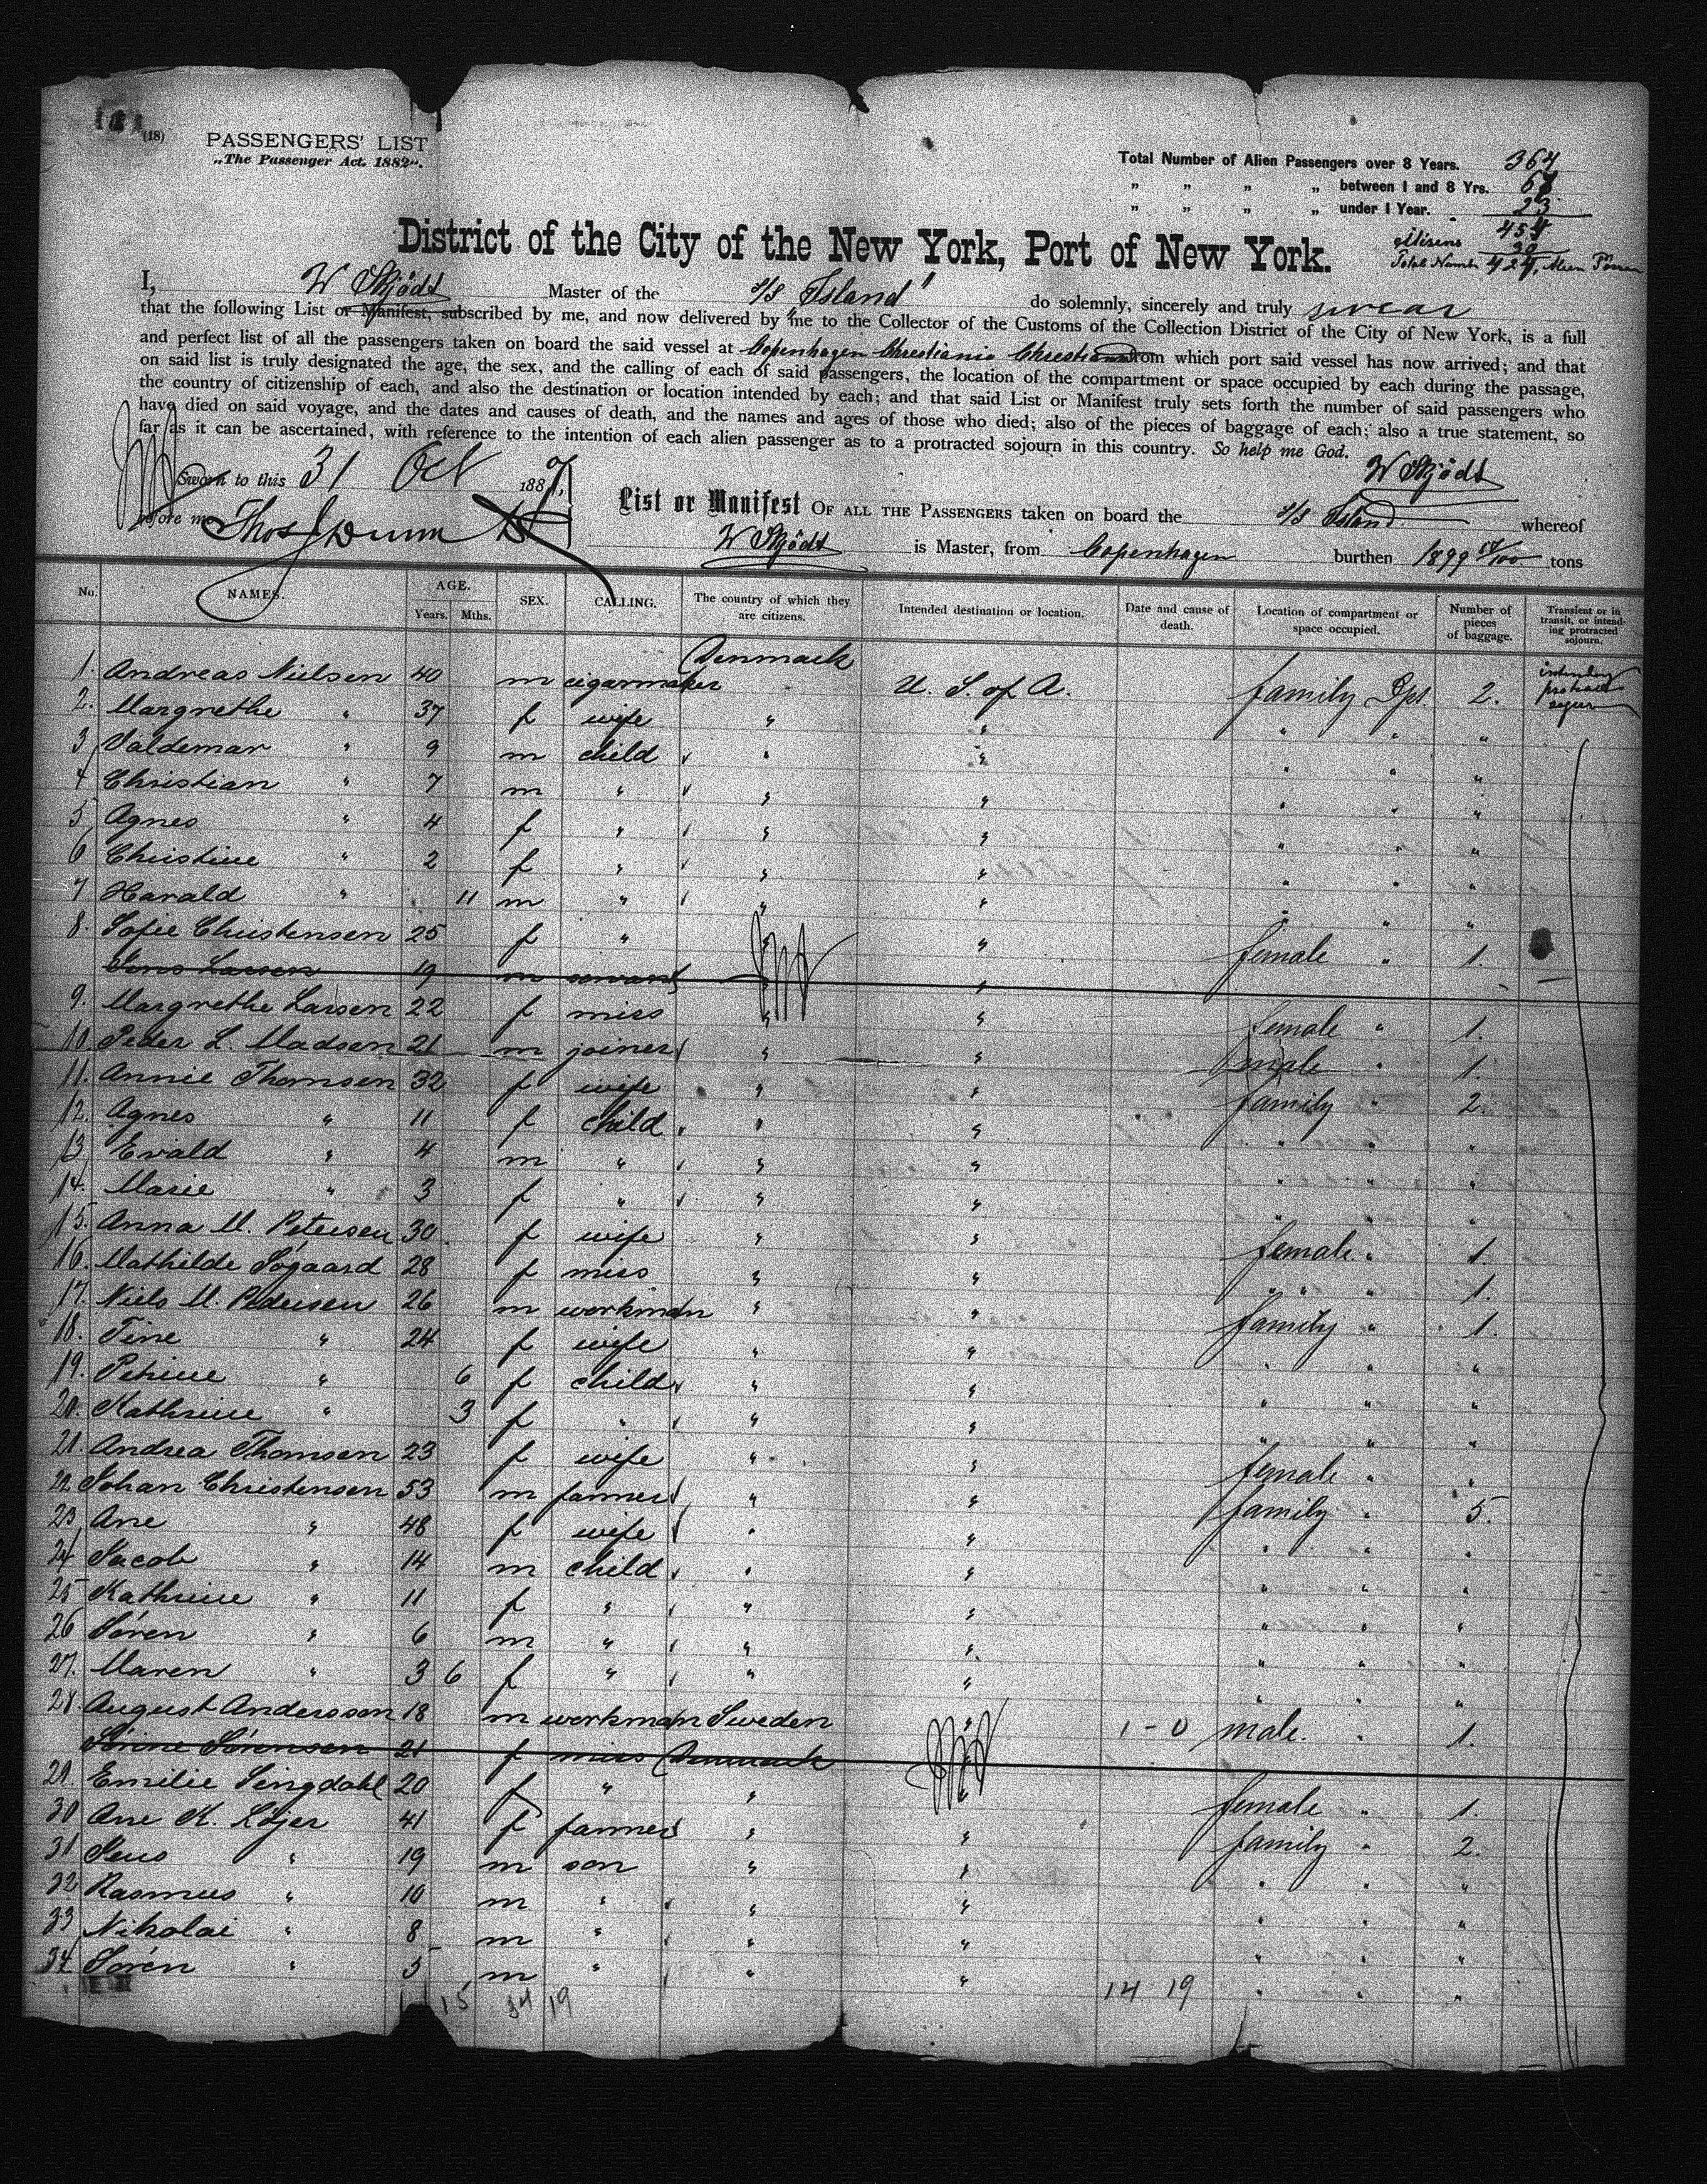 (18)
PASSENGERS' LIST
„The Passenger Act. 1882".
Total Number of Alien Passengers over 8 Years. 364
„ „ „ „ between 1 and 8 Yrs. 68
„ „ „ „ under 1 Year. 23
454
citizens 30
Total Number 424, Alien
District of the City of the New York, Port of New York.
I, W Skjödt Master of the S/S "Island" do solemnly, sincerely and truly swear
that the following List or Manifest, subscribed by me, and now delivered by me to the Collector of the Customs of the Collection District of the City of New York, is a full
and perfect list of all the passengers taken on board the said vessel at Copenhagen Christiania Christiansand from which port said vessel has now arrived; and that
on said list is truly designated the age, the sex, and the calling of each of said passengers, the location of the compartment or space occupied by each during the passage,
the country of citizenship of each, and also the destination or location intended by each; and that said List or Manifest truly sets forth the number of said passengers who
have died on said voyage, and the dates and causes of death, and the names and ages of those who died; also of the pieces of baggage of each; also a true statement, so
far as it can be ascertained, with reference to the intention of each alien passenger as to a protracted sojourn in this country. So help me God.
W Skjödt
Sworn to this 31 Oct 1887,
before me Thos J Dunn
List or Manifest OF ALL THE PASSENGERS taken on board the S/S Island whereof
W Skjödt is Master, from Copenhagen burthen 1899 /100 tons
No. NAMES. AGE. Years. Mths. SEX. CALLING. The country of which they are citizens. Intended destination or location. Date and cause of death. Location of compartment or space occupied. Number of pieces of baggage. Transient or in transit, or intending protracted sojourn.
1. Andreas Nielsen 40 m cigarmaker Denmark U. S. of A. family Dpt. 2. intending protract
2. Margrethe " 37 f wife " " " " "
3 Valdemar " 9 m child " " " " "
4 Christian " 7 m " " " " " "
5 Agnes " 4 f " " " " " "
6 Christine " 2 f " " " " " "
7 Harald " 11 m " " " " " "
8. Sofie Christensen 25 f " " " female " 1.
Jens Larsen 19 m servant " "
9. Margrethe Larsen 22 f miss " " female " 1.
10. Peder L. Madsen 21 m joiner " " male " 1.
11. Annie Thomsen 32 f wife " " family " 2.
12. Agnes " 11 f child " " " " "
13 Evald " 4 m " " " " " "
14. Marie " 3 f " " " " " "
15. Anna M. Petersen 30 f wife " " female " 1.
16. Mathilde Sögaard 28 f miss " " " " 1.
17. Niels M. Pedersen 26 m workman " " family " 1.
18. Tine " 24 f wife " " " " "
19. Petrine " 6 f child " " " " "
20. Kathrine " 3 f " " " " " "
21. Andrea Thomsen 23 f wife " " female " "
22 Johan Christensen 53 m farmer " " family " 5.
23 Ane " 48 f wife " " " " "
24 Jacob " 14 m child " " " " "
25 Kathrine " 11 f " " " " " "
26 Sören " 6 m " " " " " "
27. Maren " 3 6 f " " " " " "
28. August Andersson 18 m workman Sweden " 1-0 male " 1.
Sörine Sörensen 21 f miss Denmark "
29. Emilie Lingdahl 20 f " " female " 1.
30 Ane K. Löjer 41 f farmer " " family " 2.
31 Jens " 19 m son " " " " "
32 Rasmus " 10 m " " " " " "
33 Nikolai " 8 m " " " " " "
34 Sören " 5 m " " " " " "
15 34 19 14 19